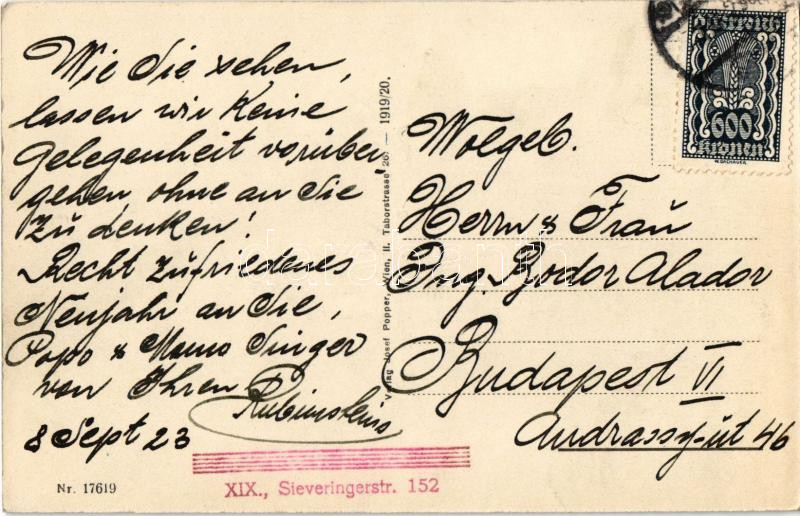 Wie Sie sehen,
lassen wir keine
Gelegenheit vorüber
gehen, ohne an Sie
zu denken!
Recht zufriedenes
Neujahr an Sie,
Papa & Mama Singer
von Ihren
Rubinsteins
8 Sept 23
XIX., Sieveringerstr. 152
Nr. 17619
Verlag Josef Popper, Wien, II. Taborstrasse — 1919/20.
Österreich
600
Kronen
Wolgeb.
Herrn & Frau
Ing. Bodor Alador
Budapest VI
Andrassy-út 46
darabanth